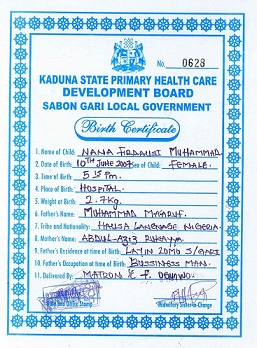 No. 0628
KADUNA STATE PRIMARY HEALTH CARE
DEVELOPMENT BOARD
SABON GARI LOCAL GOVERNMENT
Birth Certificate
1. Name of Child: NANA FIRDAUSI MUHAMMAD
2. Date of Birth: 10TH JUNE 2007 Sex of Child: FEMALE.
3. Time of Birth: 5:15 Pm.
4. Place of Birth: HOSPITAL.
5. Weight at Birth: 2.7kg.
6. Father's Name: MUHAMMAD MA'ARUF.
7. Tribe and Nationality: HAUSA LANGUAGE NIGERIA.
8. Mother's Name: ABDUL-AZIZ RUKAYYA.
9. Father's Residence at time of Birth: LAYIN ZOMO S/GARI
10. Father's Occupation at time of Birth: BUSSINESS MAN.
11. Delivered By: MATRON F.
Office Stamp
Midwifery Sister-in-Charge